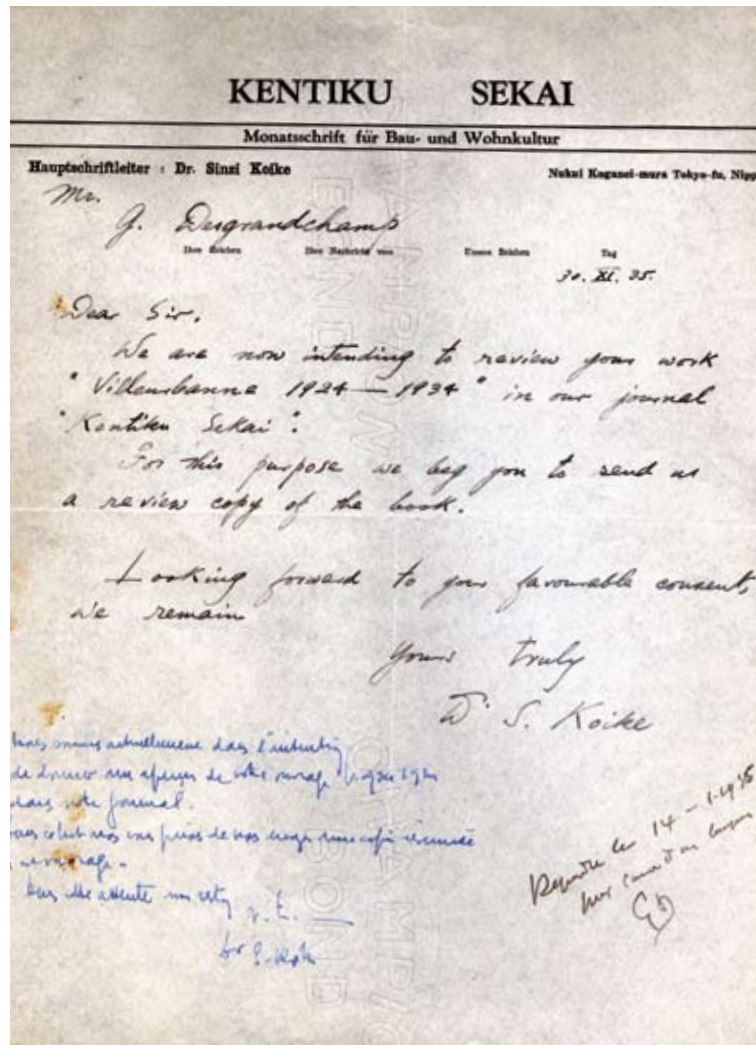 KENTIKU SEKAI
Monatsschrift für Bau- und Wohnkultur
Hauptschriftleiter : Dr. Sinzi Koike
Nukui Koganei-mura Tokyo-fu, Nipp
Mr.
G. Desgrandchamp
Ihre Zeichen Ihre Nachricht vom Unsere Zeichen Tag
30. XI. 35.
Dear Sir,
We are now intending to review your work
"Villeurbanne 1924—1934" in our journal
"Kentiku Sekai".
For this purpose we beg you to send us
a review copy of the book.
Looking forward to your favourable consent,
we remain
Yours truly
Dr S. Koike
sommes actuellement dans l'intention
de donner un aperçu de votre ouvrage
dans votre journal.
ouvrage.
Dans attente
Dr S. Koike
14 - 1-1936